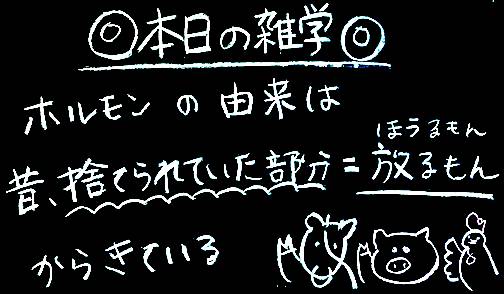 ◎本日の雑学◎
ホルモンの由来は
ほうるもん
昔、捨てられていた部分=放るもん
からきている